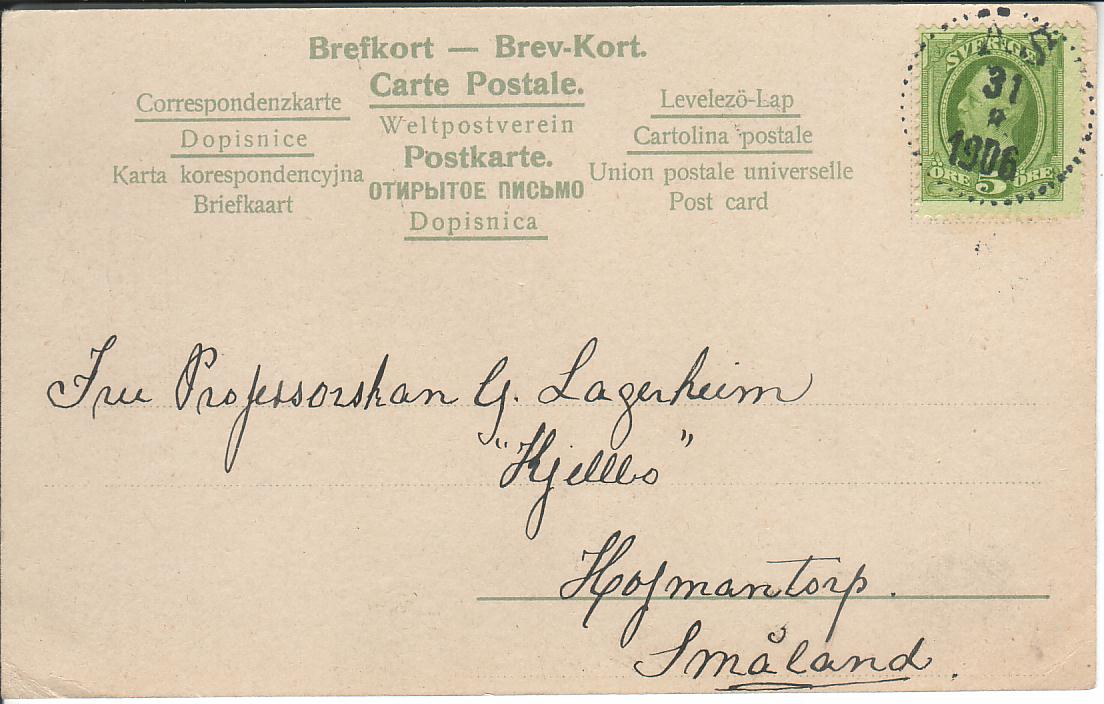 Brefkort — Brev-Kort.
Carte Postale.
Correspondenzkarte
Dopisnice
Karta korespondencyjna
Briefkaart
Weltpostverein
Postkarte.
ОТКРЫТОЕ ПИСЬМО
Dopisnica
Levelezö-Lap
Cartolina postale
Union postale universelle
Post card
SVERIGE
ÖRE 5 ÖRE
31
1906
Fru Professorskan G. Lagerheim
"Kjellbo"
Hofmantorp.
Småland.